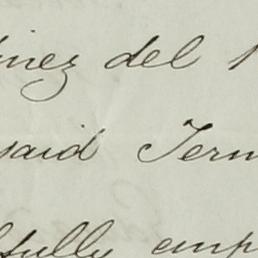 inez del
said Term
fully emp